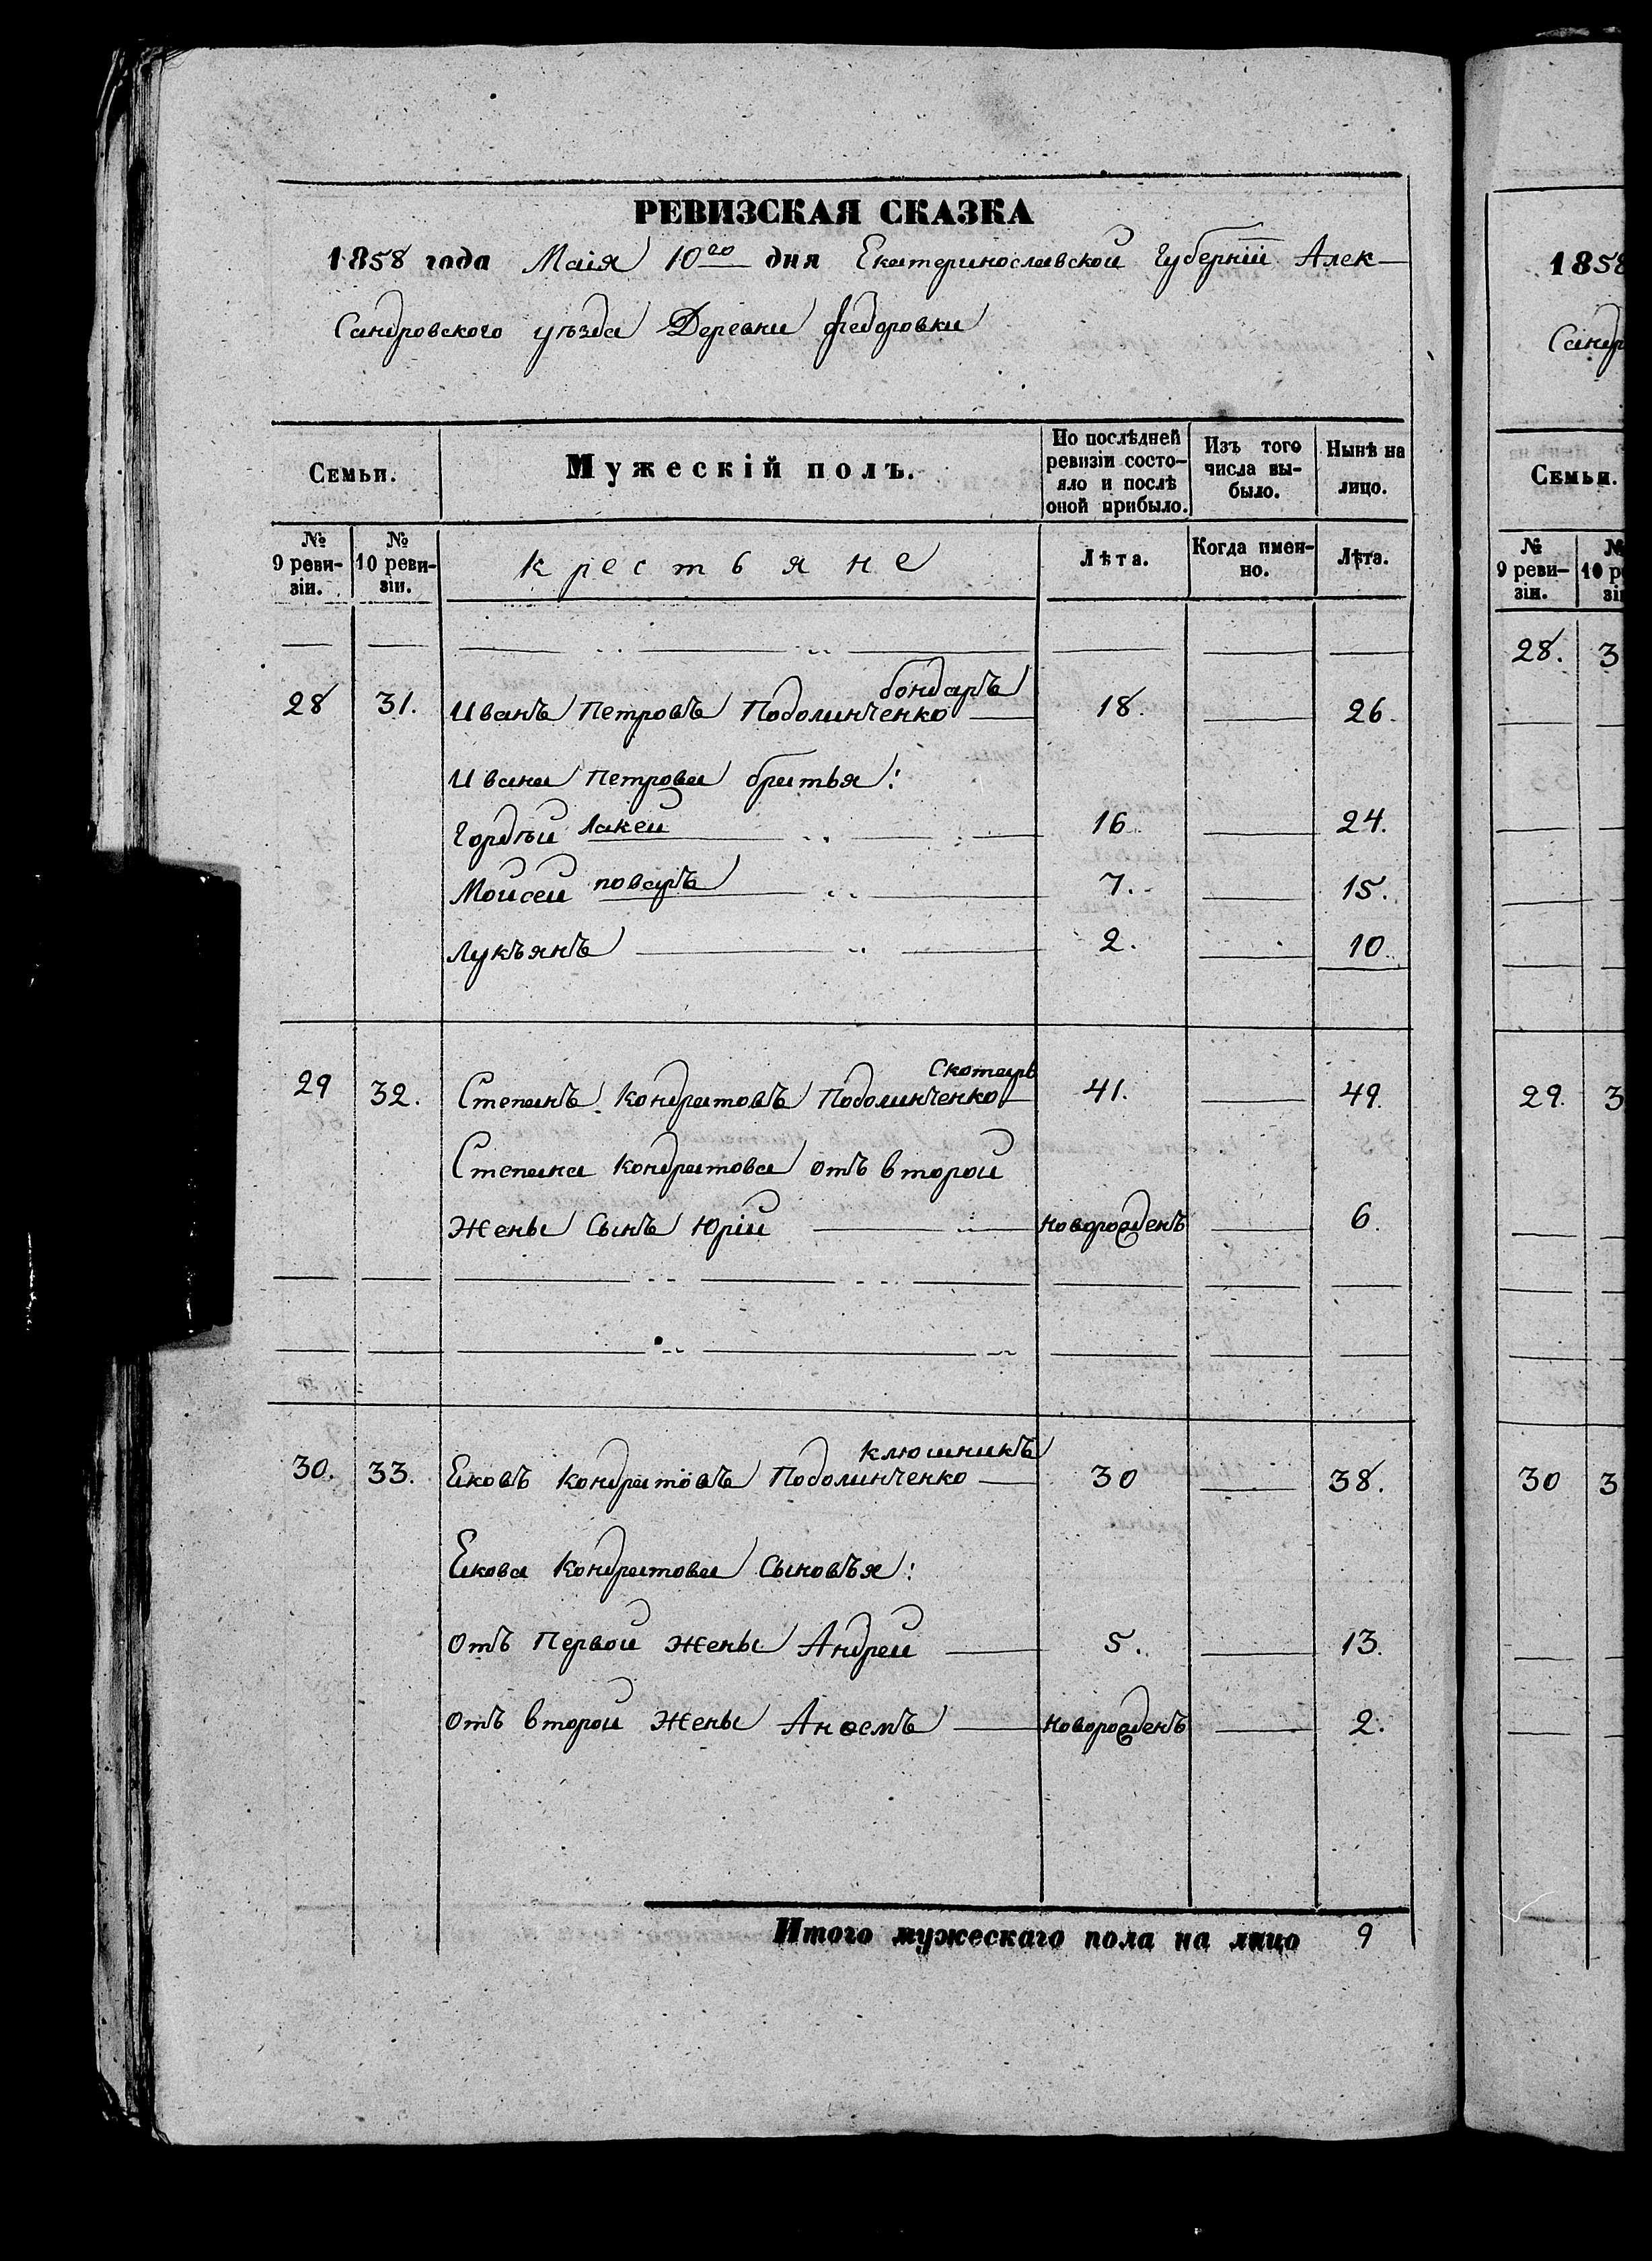 РЕВИЗСКАЯ СКАЗКА
1858 года Маія 10го дня Екатеринославской Губерніи Алек-
Сандровского уѣзда Деревни Федоровки
Семьи.
Мужескій полъ.
По послѣдней ревизіи состо-
яло и послѣ оной прибыло.
Изъ того числа вы-
было.
Нынѣ на лицо.
№ 9 реви-
зіи.
№ 10 реви-
зіи.
крестьяне
Лѣта.
Когда имен-
но.
Лѣта.
бондаръ
28 31. Иванъ Петровъ Подолинченко 18. 26.
Ивана Петрова братья:
Гордѣй Лакей 16. 24.
Мойсей поваръ 7. 15.
Лукъянъ 2. 10.
Скотаръ
29 32. Степанъ Кондратовъ Подолинченко 41. 49.
Степана Кондратова отъ второй
жены Сынъ Юрій новорожденъ 6.
Клюшникъ
30. 33. Яковъ Кондратовъ Подолинченко 30 38.
Якова Кондратова Сыновъя:
отъ Первой жены Андрей 5. 13.
отъ второй жены новорожденъ 2.
Итого мужескаго пола на лицо 9
1858
Сандр
Семьи.
№ 9 реви-
зіи.
28. 3
29. 3
30 3